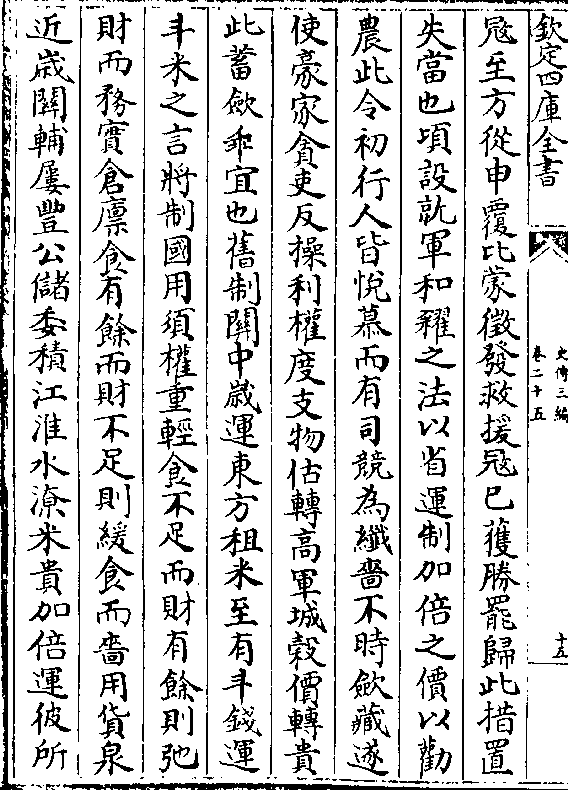 欽定四庫全書
史傳三編
卷二十五
十五
冦至方從申覆比蒙徵發救援冦已獲勝罷歸此措置
失當也頃設就軍和糴之法以省運制加倍之價以勸
農此令初行人皆悅慕而有司競為纎嗇不時歛藏遂
使豪家貪吏反操利權度支物估轉高軍城榖價轉貴
此蓄歛乖宜也舊制關中歲運東方租米至有斗錢運
斗米之言將制國用須權重輕食不足而財有餘則弛
財而務實倉廪食有餘而財不足則緩食而嗇用貨泉
近歲關輔屢豐公儲委積江淮水潦米貴加倍運彼所